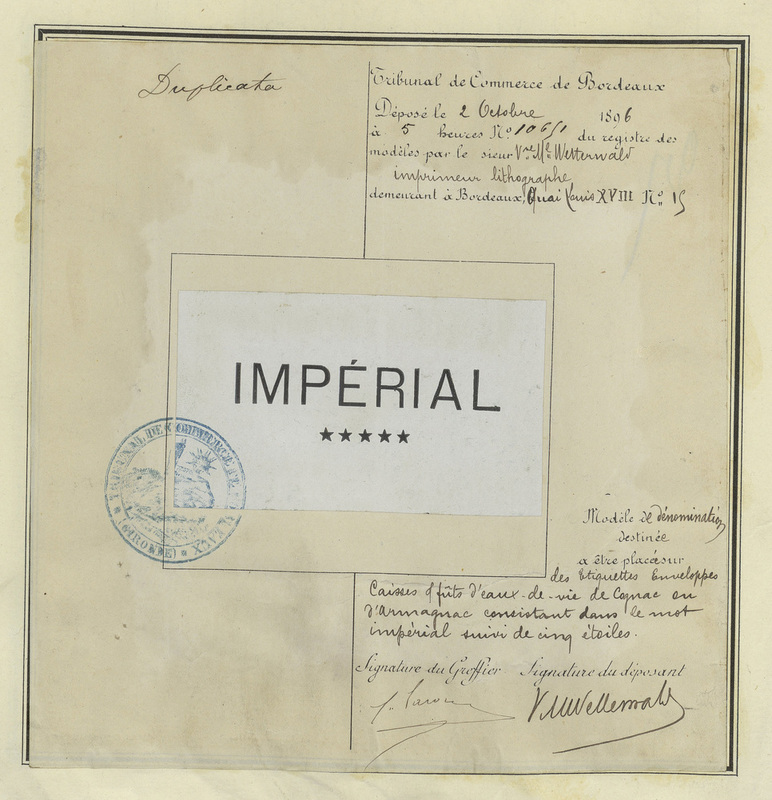 Duplicata
Tribunal de Commerce de Bordeaux
Déposé le 2 Octobre 1896
à 5 heures N° 10651 du registre des
modèles par le sieur Vve Mel Wetterwald
imprimeur lithographe
demeurant à Bordeaux, Quai Louis XVIII N° 15
IMPÉRIAL
★★★★★
TRIBUNAL DE COMMERCE DE BORDEAUX
(GIRONDE)
Modèle de dénomination
destinée
a être placée sur
des Etiquettes Enveloppes
Caisses & fûts d'eaux-de-vie de Cognac ou
d'Armagnac consistant dans le mot
impérial suivi de cinq étoiles.
Signature du Greffier Signature du déposant